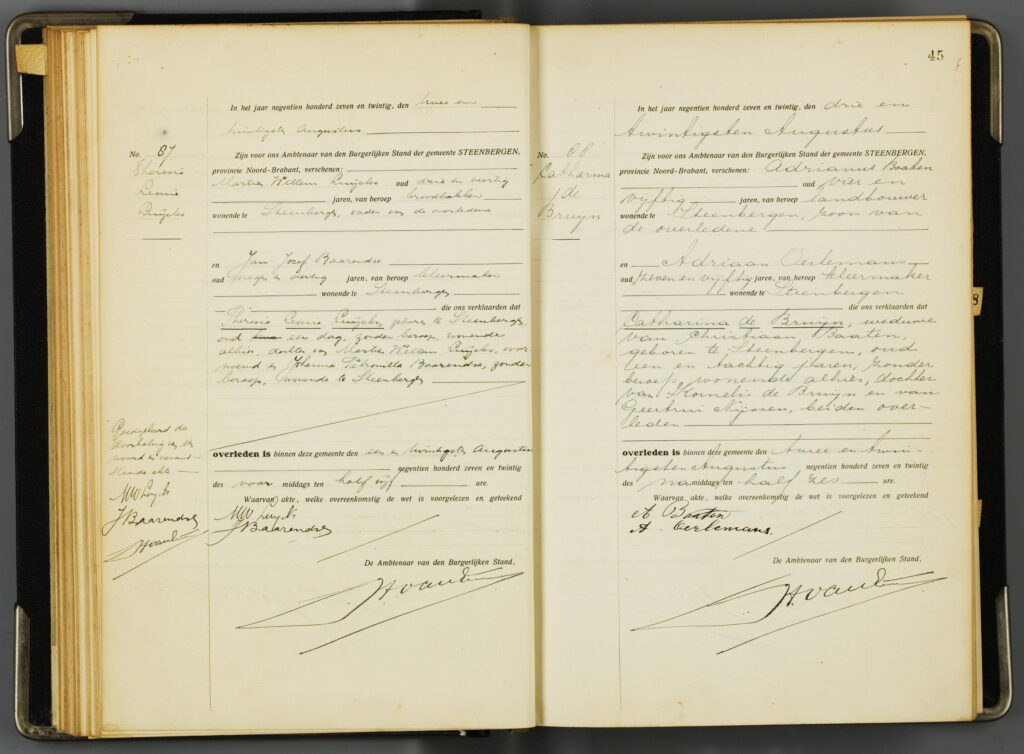 In het jaar negentien honderd zeven en twintig, den twee en
twintigsten Augustus
No. 87
Theresia
Leonie
Zijn voor ons Ambtenaar van den Burgerlijken Stand der gemeente STEENBERGEN,
provincie Noord-Brabant, verschenen:
Willem oud drie en veertig
jaren, van beroep broodbakker
wonende te Steenbergen, vader van de overledene
en Jan Jozef Baarendse
oud negen en dertig jaren, van beroep kleermaker
wonende te Steenbergen
die ons verklaarden dat
Theresia Leonie geboren te Steenbergen
oud een dag, zonder beroep, wonende
alhier, dochter van Willem
en Johanna Petronilla Baarendse, zonder
beroep, wonende te Steenbergen
Goedgekeurd de
doorhaling van een
woord in
staande akte
J Baarendse
overleden is binnen deze gemeente den een en twintigsten Augustus
negentien honderd zeven en twintig
des voor middags ten half vijf ure.
Waarvan akte, welke overeenkomstig de wet is voorgelezen en geteekend
J Baarendse
De Ambtenaar van den Burgerlijken Stand,
45
In het jaar negentien honderd zeven en twintig, den drie en
twintigsten Augustus
No. 88
Catharina
de
Bruijn
Zijn voor ons Ambtenaar van den Burgerlijken Stand der gemeente STEENBERGEN,
provincie Noord-Brabant, verschenen: Adrianus Baaten
oud vier en
vijftig jaren, van beroep landbouwer
wonende te Steenbergen, zoon van
de overledene
en Adriaan Oerlemans
oud zeven en vijftig jaren, van beroep kleermaker
wonende te Steenbergen
die ons verklaarden dat
Catharina de Bruijn, weduwe
van Christiaan Baaten,
geboren te Steenbergen, oud
een en tachtig jaren, zonder
beroep, wonende alhier, dochter
van Kornelis de Bruijn en van
Geertrui Nijssen, beiden over-
leden
overleden is binnen deze gemeente den twee en twin-
tigsten Augustus negentien honderd zeven en twintig
des namiddags ten half zes ure.
Waarvan akte, welke overeenkomstig de wet is voorgelezen en geteekend
A Baaten
A. Oerlemans.
De Ambtenaar van den Burgerlijken Stand,
8